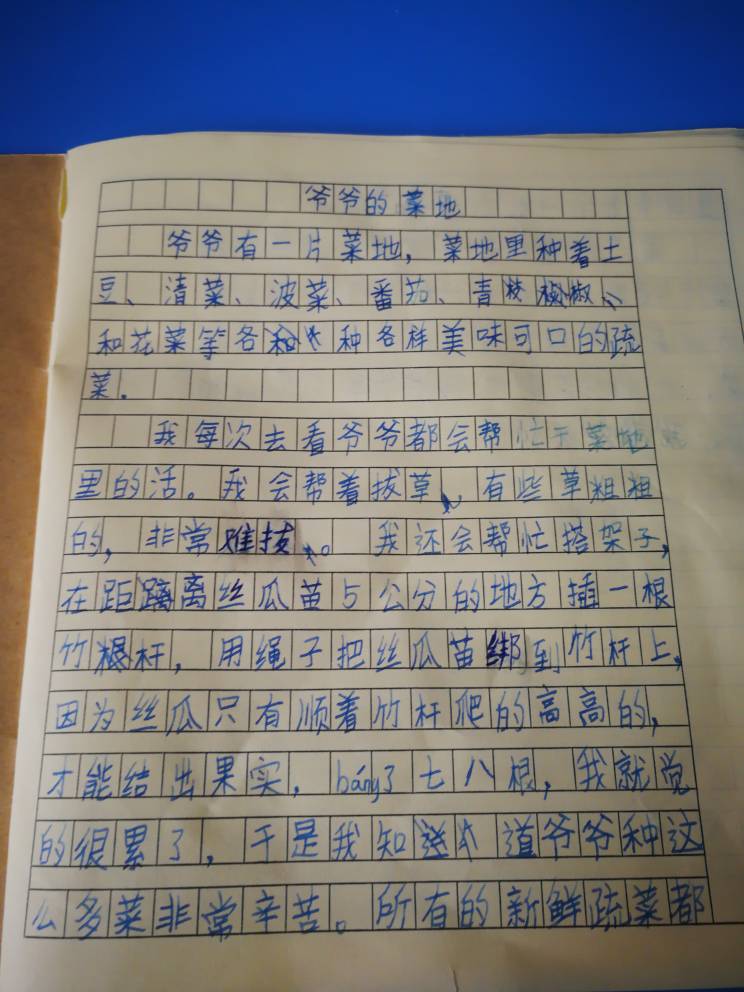 爷爷的菜地
爷爷有一片菜地，菜地里种着土
豆、清菜、波菜、番茄、青椒、
和花菜等各种各样美味可口的疏
菜.
我每次去看爷爷都会帮忙干菜地
里的活。我会帮着拔草、有些草粗粗
的，非常难拔。我还会帮忙搭架子，
在距离丝瓜苗5公分的地方插一根
竹杆，用绳子把丝瓜苗绑到竹杆上，
因为丝瓜只有顺着竹杆爬的高高的，
才能结出果实，bǎng了七八根，我就觉
的很累了，于是我知道爷爷种这
么多菜非常辛苦。所有的新鲜疏菜都